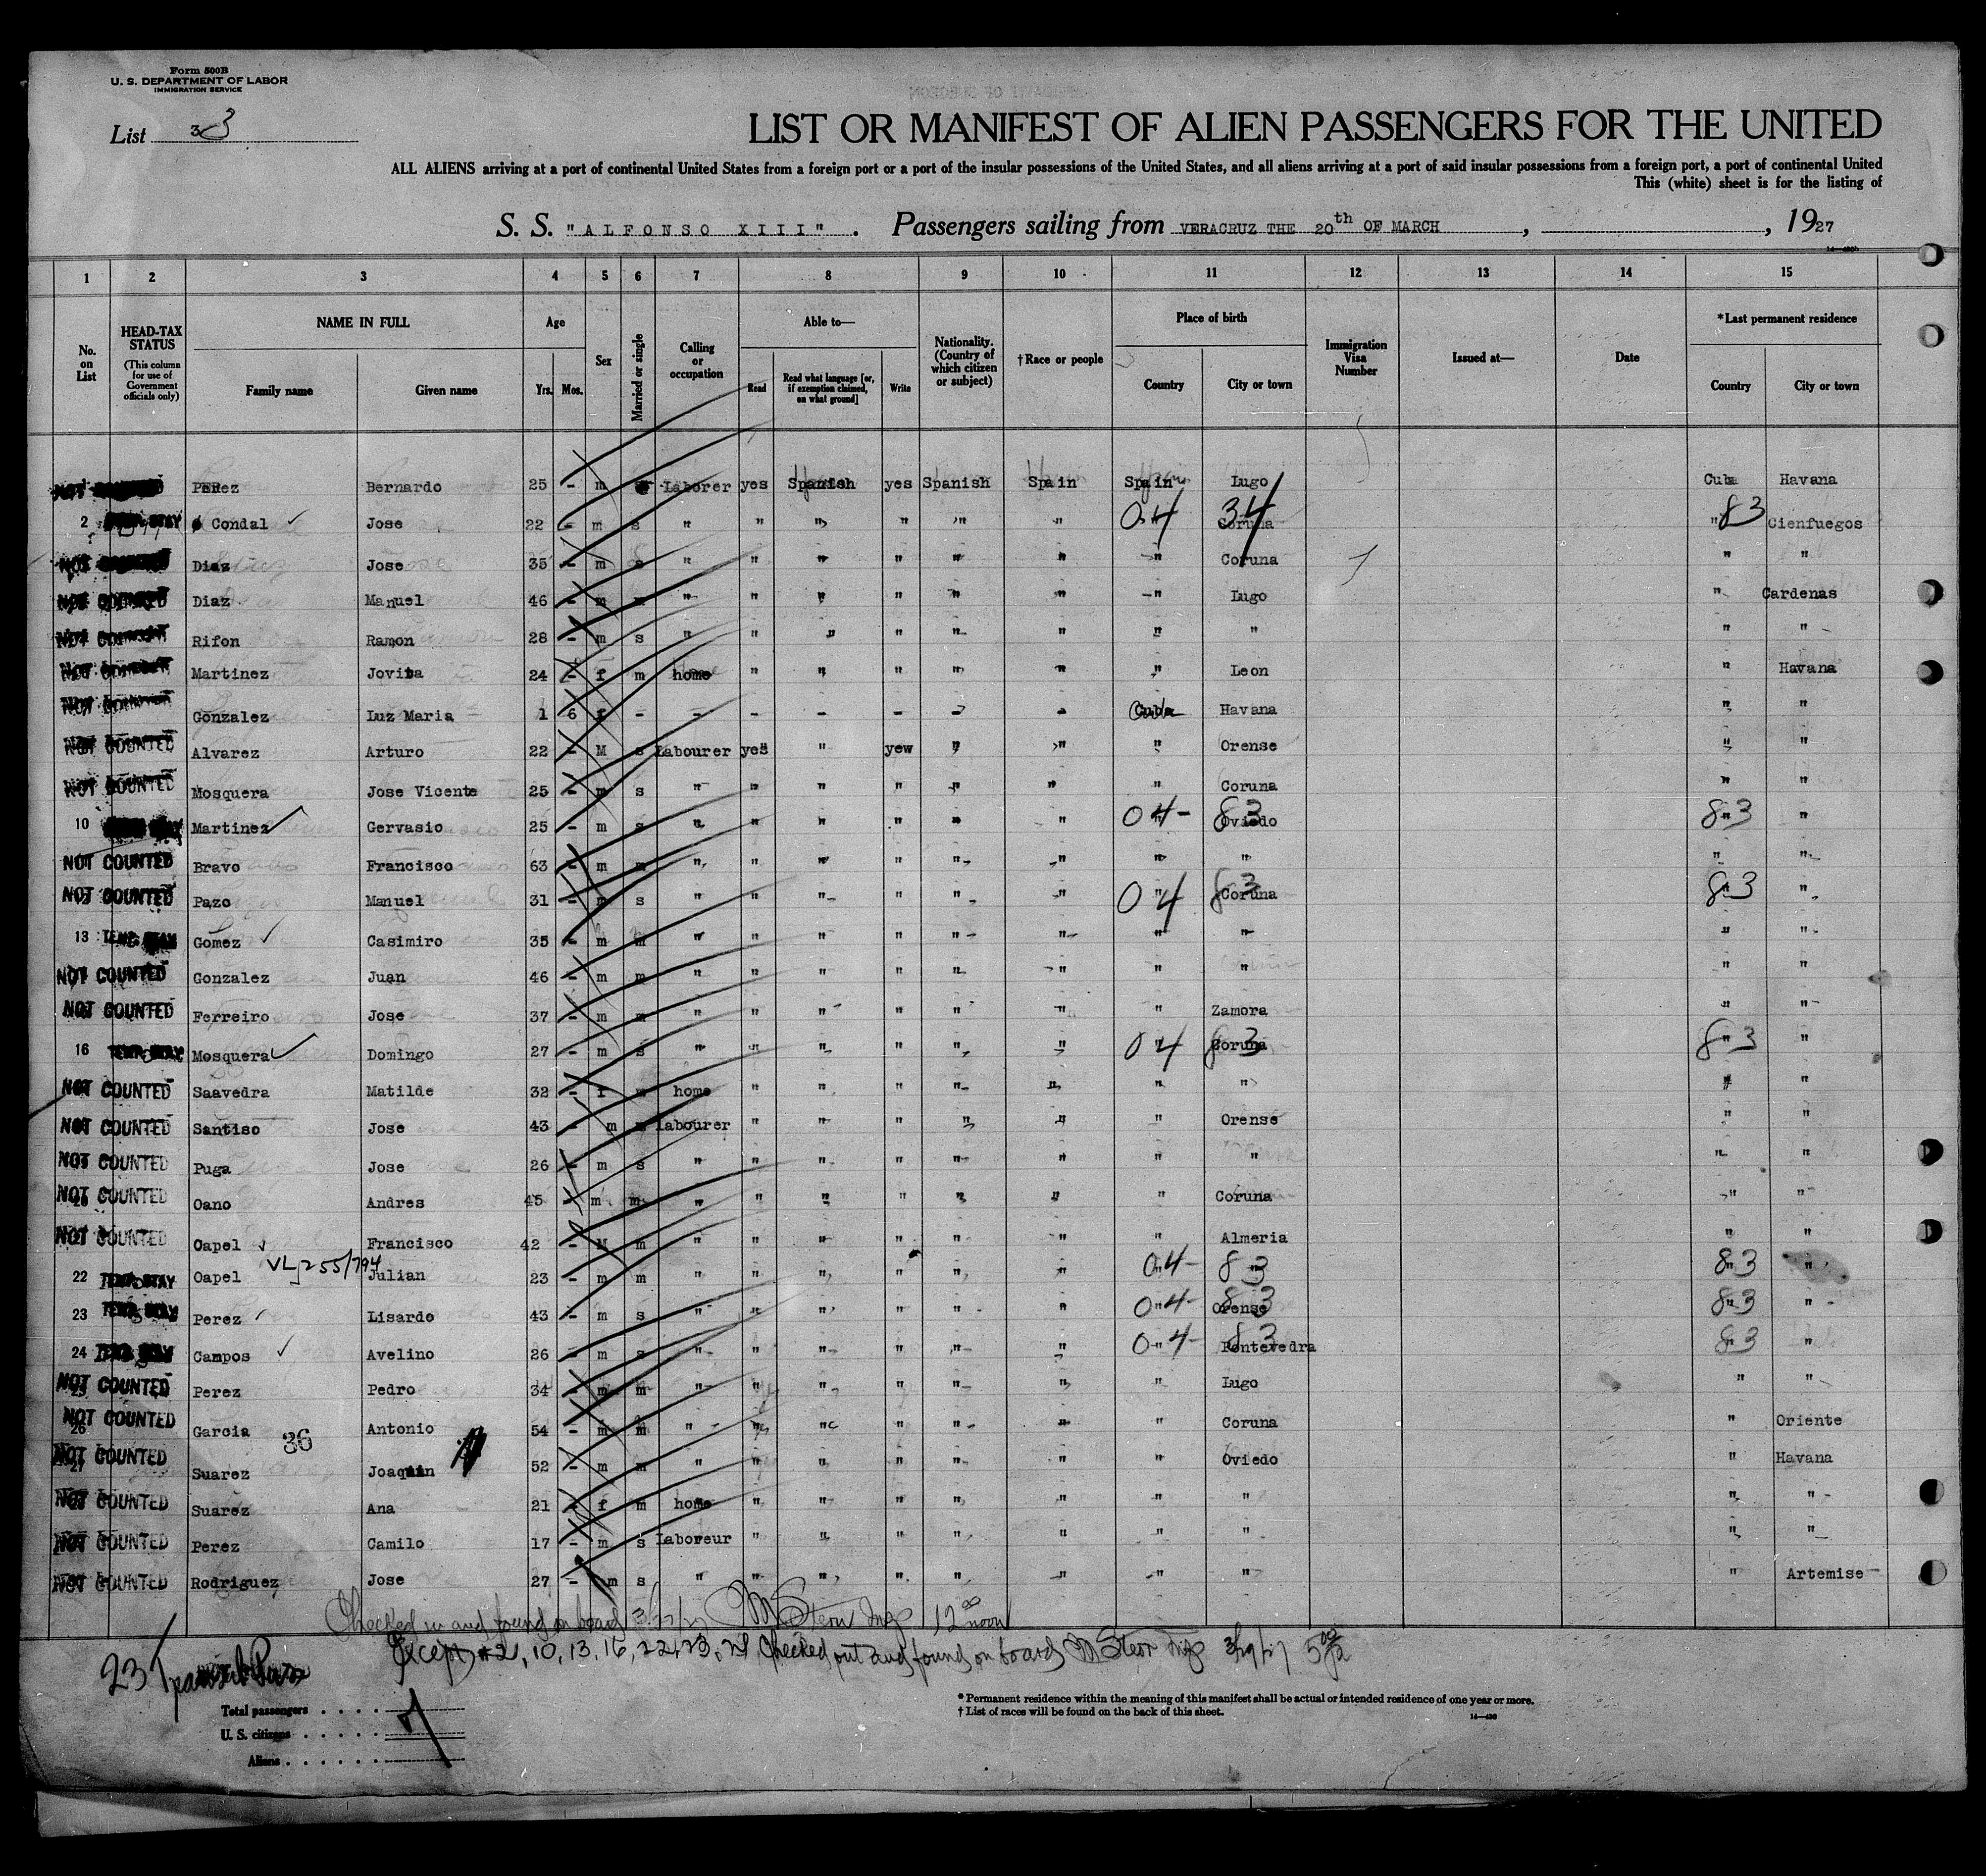 Form 500B
U. S. DEPARTMENT OF LABOR
IMMIGRATION SERVICE
List 3 3
LIST OR MANIFEST OF ALIEN PASSENGERS FOR THE UNITED
ALL ALIENS arriving at a port of continental United States from a foreign port or a port of the insular possessions of the United States, and all aliens arriving at a port of said insular possessions from a foreign port, a port of continental United
This (white) sheet is for the listing of
S. S. "ALFONSO XIII". Passengers sailing from VERACRUZ THE 20th OF MARCH , , 1927
1 2 3 4 5 6 7 8 9 10 11 12 13 14 15
No. on List HEAD-TAX STATUS (This column for use of Government officials only) NAME IN FULL Family name Given name Age Yrs. Mos. Sex Married or single Calling or occupation Able to— Read Read what language [or, if exemption claimed, on what ground] Write Nationality. (Country of which citizen or subject) †Race or people Place of birth Country City or town Immigration Visa Number Issued at— Date *Last permanent residence Country City or town
NOT PERez Bernardo 25 - m Laborer yes Spanish yes Spanish Spain Spain Lugo Cuba Havana
2 STAY Condal ✓ Jose 22 - m s " " " " " " 04 " 34 Coruna " 83 Cienfuegos
NOT Diaz Jose 35 - m s " " " " " " " Coruna " "
NOT COUNTED Diaz Manuel 46 - m m " " " " " " " Lugo " Cardenas
NOT COUNTED Rifon Ramon 28 - m s " " " " " " " " " "
NOT COUNTED Martinez Jovita 24 - f m home " " " " " " Leon " Havana
NOT COUNTED Gonzalez Luz Maria 1 6 f - - - - - " - Cuba Havana " "
NOT COUNTED Alvarez Arturo 22 - M s Labourer yes " yew " " " Orense " "
NOT COUNTED Mosquera Jose Vicente 25 - m s " " " " " " " Coruna " "
10 Martinez ✓ Gervasio 25 - m s " " " " " " 04- " 83 Oviedo 83 " "
NOT COUNTED Bravo Francisco 63 - m m " " " " " " " " " "
NOT COUNTED Pazo Manuel 31 - m s " " " " " " 04 " 83 Coruna 83 " "
13 TEMP. STAY Gomez ✓ Casimiro 35 - m m " " " " " " " " " "
NOT COUNTED Gonzalez Juan 46 - m m " " " " " " " " " "
NOT COUNTED Ferreiro Jose 37 - m m " " " " " " " Zamora " "
16 TEMP. STAY Mosquera ✓ Domingo 27 - m s " " " " " " 04 " 83 Coruna 83 " "
NOT COUNTED Saavedra Matilde 32 - f m home " " " " " " " " "
NOT COUNTED Santiso Jose 43 - m m Labourer " " " " " " Orense " "
NOT COUNTED Puga Jose 26 - m s " " " " " " " " " "
NOT COUNTED Oano Andres 45 - m m " " " " " " " Coruna " "
NOT COUNTED Oapel ✓ Francisco 42 - M m " " " " " " " Almeria " "
VL]255/794
22 TEMP. STAY Oapel Julian 23 - m m " " " " " " 04- " 83 " 83 " "
23 TEMP. STAY Perez ✓ Lisardo 43 - m s " " " " " " 04- " 83 Orense 83 " "
24 TEMP. STAY Campos ✓ Avelino 26 - m s " " " " " " 04- " 83 Pontevedra 83 "
NOT COUNTED Perez Pedro 34 - m m " " " " " " " Lugo " "
NOT COUNTED 26 Garcia Antonio 54 - m m " " " " " " " Coruna " Oriente
36
NOT COUNTED 27 Suarez Joaquin 52 - m m " " " " " " " Oviedo " Havana
NOT COUNTED Suarez Ana 21 - f m home " " " " " " " " "
NOT COUNTED Perez Camilo 17 - m s Laboreur " " " " " " " " "
NOT COUNTED Rodriguez Jose 27 - m s " " " " " " " " " Artemise
Checked in and found on board 3/27/27 M Stern Insp 12 00 noon
Except #2, 10, 13, 16, 22, 23, 24 Checked out and found on board M Stern Insp 3/29/27 5 00
23 Transit
Total passengers . . . .
U. S. citizens . . . . . 7
Aliens . . . . . .
* Permanent residence within the meaning of this manifest shall be actual or intended residence of one year or more.
† List of races will be found on the back of this sheet.